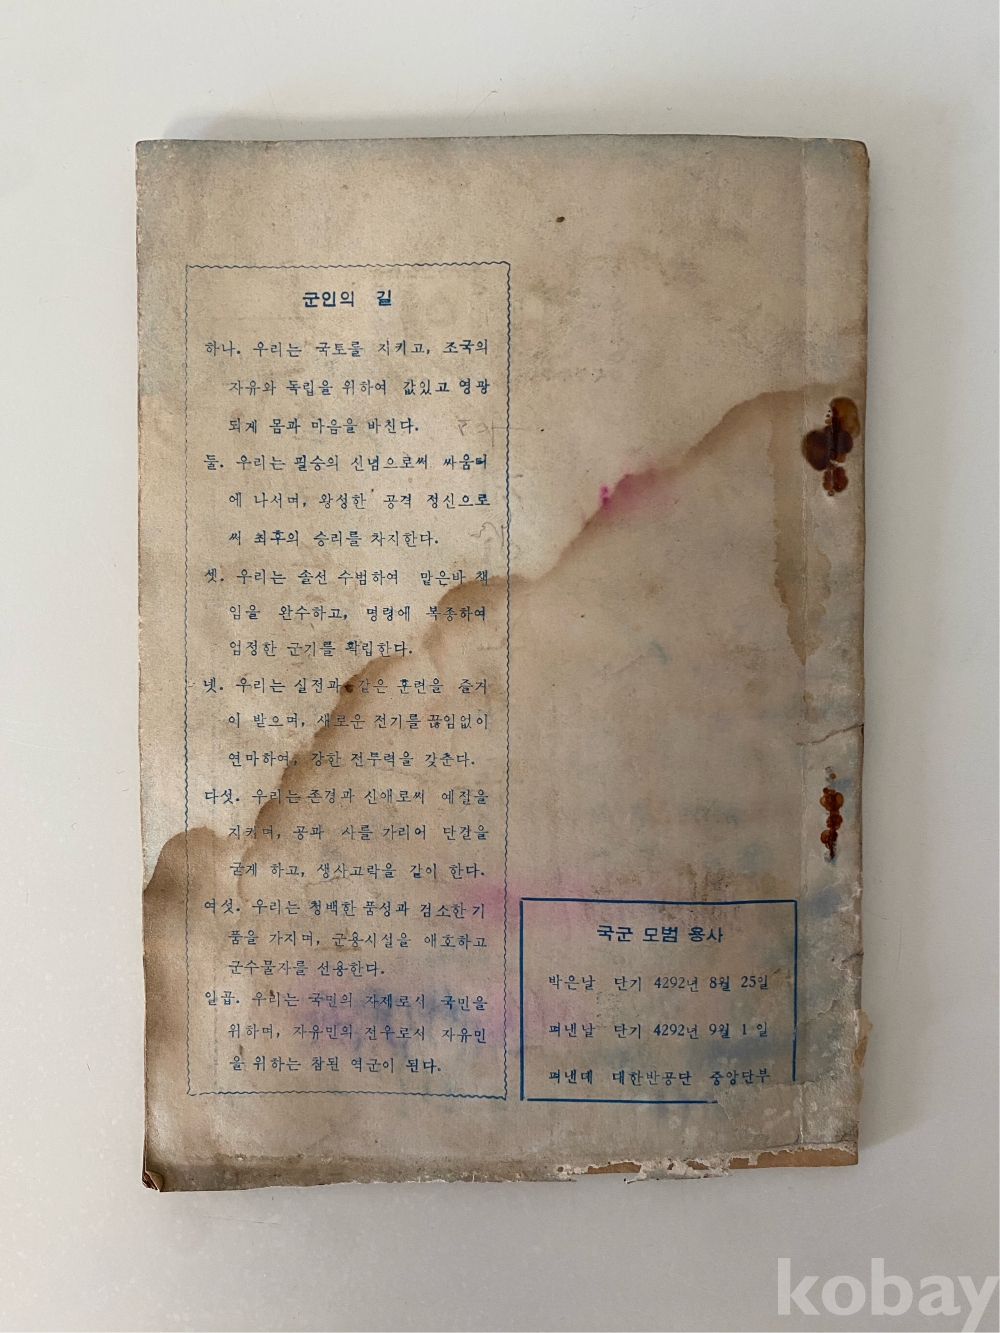 군인의 길
하나. 우리는 국토를 지키고, 조국의
자유와 독립을 위하여 값있고 영광
되게 몸과 마음을 바친다.
둘. 우리는 필승의 신념으로써 싸움터
에 나서며, 왕성한 공격 정신으로
써 최후의 승리를 차지한다.
셋. 우리는 솔선 수범하여 맡은바 책
임을 완수하고, 명령에 복종하여
엄정한 군기를 확립한다.
넷. 우리는 실전과 같은 훈련을 즐거
이 받으며, 새로운 전기를 끊임없이
연마하여, 강한 전투력을 갖춘다.
다섯. 우리는 존경과 신애로써 예절을
지키며, 공과 사를 가리어 단결을
굳게 하고, 생사고락을 같이 한다.
여섯. 우리는 청백한 품성과 검소한 기
품을 가지며, 군용시설을 애호하고
군수물자를 선용한다.
일곱. 우리는 국민의 자제로서 국민을
위하며, 자유민의 전우로서 자유민
을 위하는 참된 역군이 된다.
국군 모범 용사
박은날 단기 4292년 8월 25일
펴낸날 단기 4292년 9월 1일
펴낸데 대한반공단 중앙단부
kobay